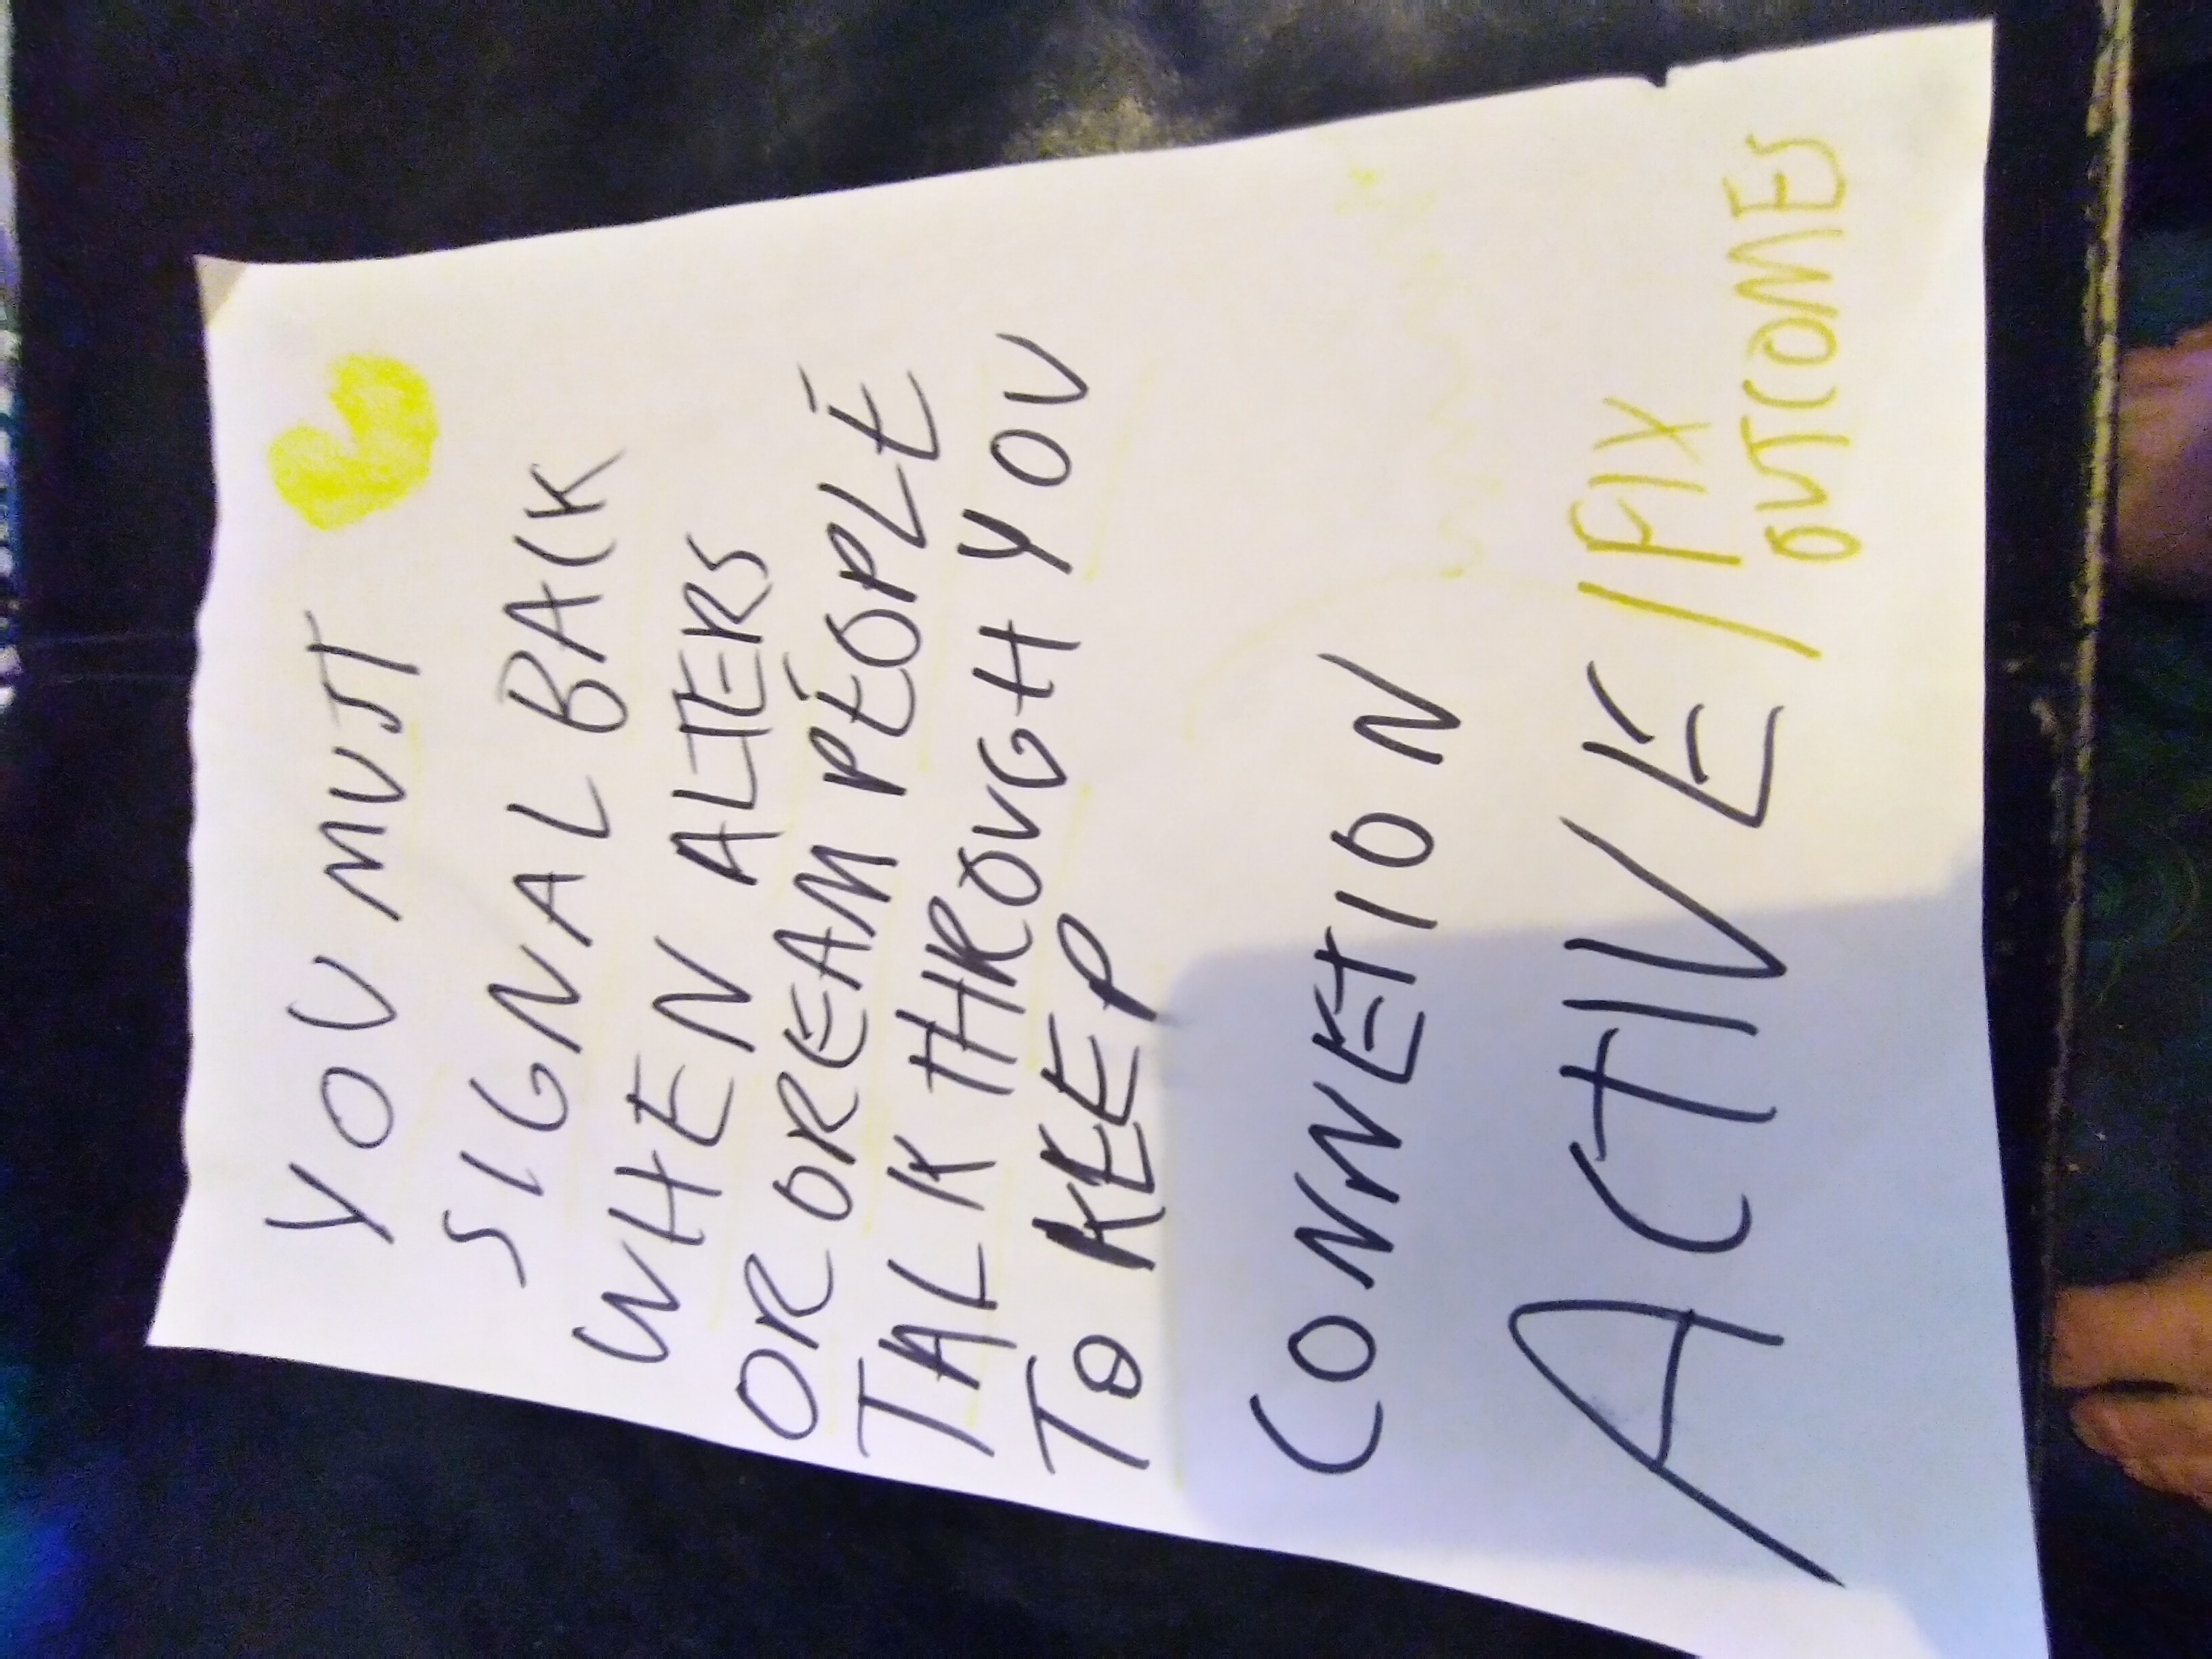 YOU MUST
SIGNAL BACK
WHEN ALTERS
OR DREAM PEOPLE
TALK THROUGH YOU
TO KEEP
CONNETION
ACTIVE/FIX
OUTCOMES